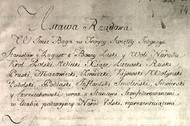 Ustawa Rządowa.
W Imie Boga w Troycy Swiętey Jedynego.
Stanisław August z Bożey Łaski y Woli Narodu
Krol Polski, Wielki Xiąże Litewski, Ruski,
Pruski, Mazowiecki, Zmudzki, Kijowski, Wołynski,
Podolski, Podlaski, Inflantski, Smolenski, Siewierski
y Czerniechowski, wraz z Stanami Skonfederowanemi w
liczbie podwoyney Narod Polski reprezentuiącemi.